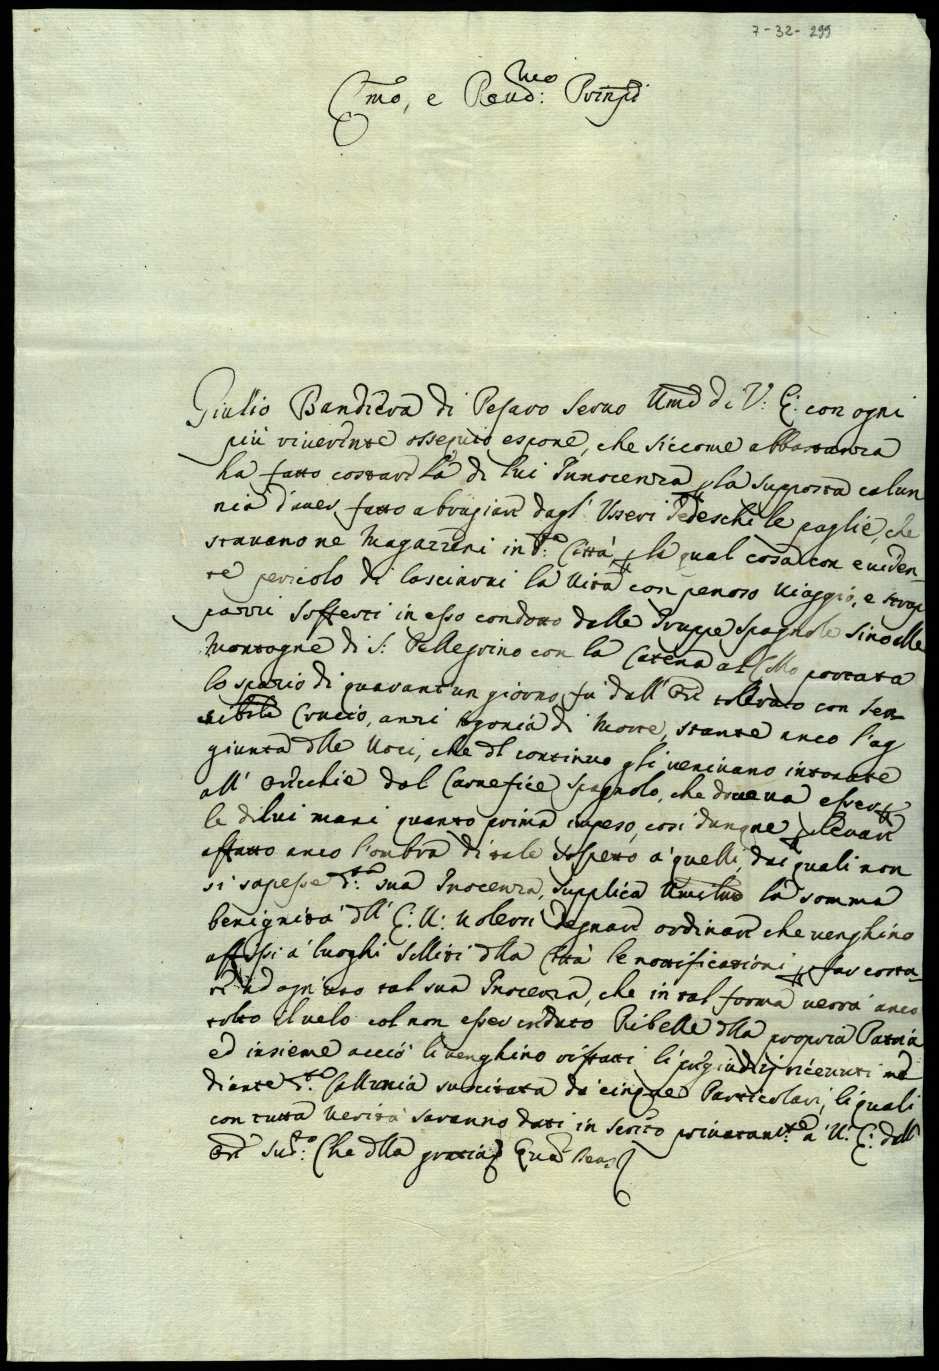 7-32-299
Emo, e Revd:mo Prinpe
Giulio Bandiera di Pesaro Servo Umo di V: E: con ogni
più riverente ossequio espone, che siccome abbastanza
ha fatto costare la di lui Innocenza p la supposta calun
nia d'aver fatto abrugiare dagl' Usseri Tedeschi le paglie, che
stavano ne Magazzeni in d:ta Città, p la qual cosa con eviden-
te pericolo di lasciarvi la Vita con penoso Viaggio, e strap
pazzi sofferti in esso condotto dalle Truppe Spagnole sino alle
Montagne di S: Pellegrino con la Catena al Collo portata
lo spazio di quarant'un giorno, fu dall' Ore tollerato con sen
sibile Cruccio, anzi agonia di Morte, stante anco l'ag
giunta dlle Voci, che dl continuo gli venivano intonate
all' orecchie dal Carnefice Spagnolo, che doveva esser p
le di lui mani quanto prima impeso, così dunque p levare
affatto anco l'ombra di tale sospetto a' quelli, dai quali non
si sapesse d:ta sua Inocenza, supplica Umilmte la somma
benignità dll' E: V: volersi degnare ordinare che venghino
affissi a' luoghi soliti dlla Città le nottificazioni p far costa-
re ad ogn'uno tal sua Inocenza, che in tal forma verrà anco
tolto il velo col non esser creduto Ribelle dlla propria Patria
ed insieme acciò li venghino rifatti li pregiudizi ricevuti me
diante d:ta Callunia suscitata da cinque Particolari, li quali
con tutta verità saranno dati in scrito privatamte a' V: E: dall'
Ore sud:to Che dlla grazia Quam Deus